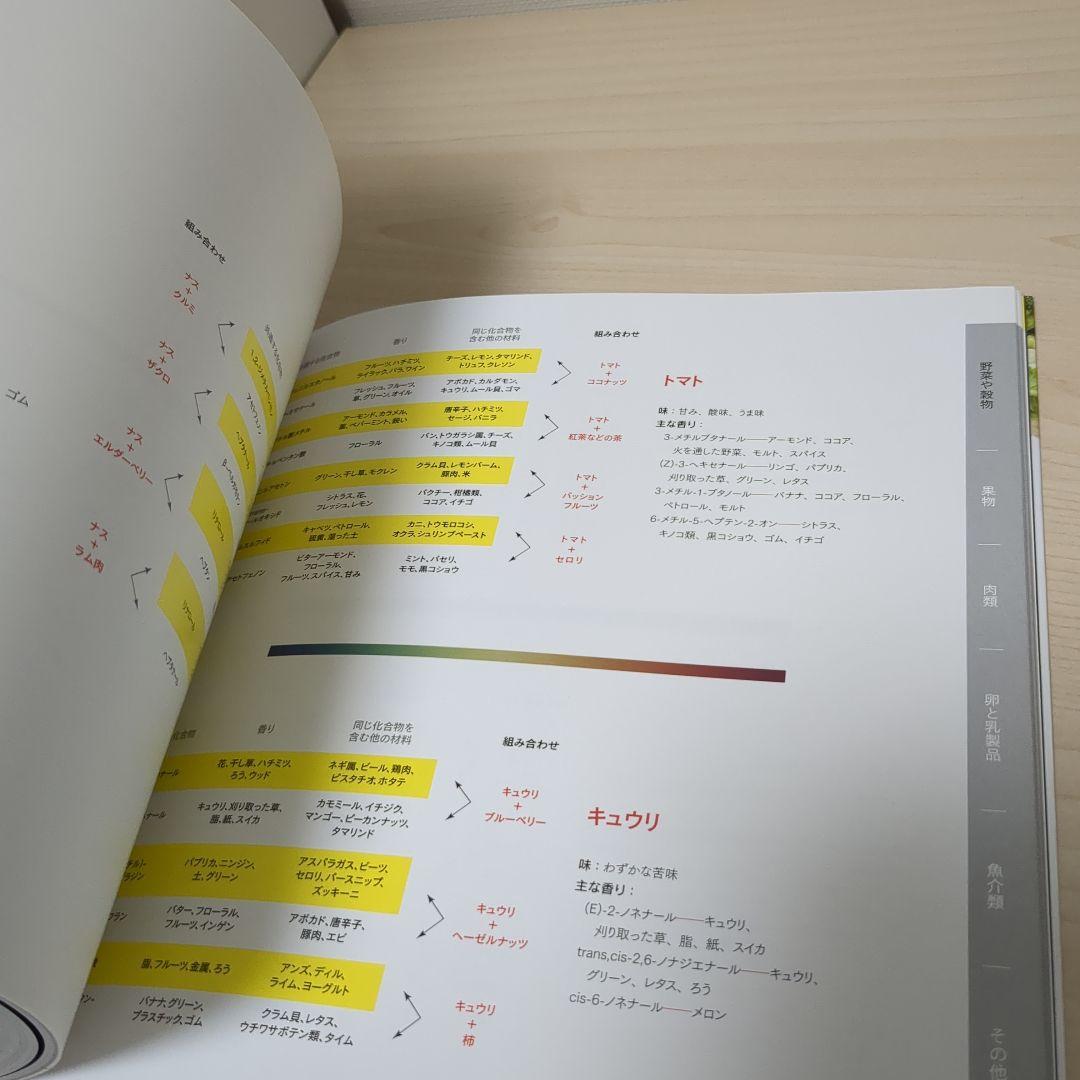 ゴム
組み合わせ
ナス
+
クルミ
ナス
+
ザクロ
ナス
+
エルダーベリー
ナス
+
ラム肉
香り
同じ化合物を
含む他の材料
組み合わせ
フルーツ、ハチミツ、
ライラック、バラ、ワイン
チーズ、レモン、タマリンド、
トリュフ、クレソン
フレッシュ、フルーツ、
草、グリーン、オイル
アボカド、カルダモン、
キュウリ、ムール貝、ゴマ
トマト
+
ココナッツ
アーモンド、カラメル、
唐辛子、ハチミツ、
セージ、バニラ
フローラル
パン、トウガラシ属、チーズ、
キノコ類、ムール貝
トマト
+
紅茶などの茶
グリーン、干し草、モクレン
クラム貝、レモンバーム、
豚肉、米
シトラス、花、
フレッシュ、レモン
パクチー、柑橘類、
ココア、イチゴ
トマト
+
パッション
フルーツ
キャベツ、ペトロール、
硫黄、湿った土
カニ、トウモロコシ、
オクラ、シュリンプペースト
ビターアーモンド、
フローラル、
フルーツ、スパイス、甘み
ミント、パセリ、
モモ、黒コショウ
トマト
+
セロリ
トマト
味：甘み、酸味、うま味
主な香り：
3-メチルブタナール——アーモンド、ココア、
火を通した野菜、モルト、スパイス
(Z)-3-ヘキセナール——リンゴ、パプリカ、
刈り取った草、グリーン、レタス
3-メチル-1-ブタノール——バナナ、ココア、フローラル、
ペトロール、モルト
6-メチル-5-ヘプテン-2-オン——シトラス、
キノコ類、黒コショウ、ゴム、イチゴ
化合物
香り
同じ化合物を
含む他の材料
組み合わせ
花、干し草、ハチミツ、
ろう、ウッド
ネギ属、ビール、鶏肉、
ピスタチオ、ホタテ
キュウリ、刈り取った草、
脂、紙、スイカ
カモミール、イチジク、
マンゴー、ピーカンナッツ、
タマリンド
キュウリ
+
ブルーベリー
パプリカ、ニンジン、
土、グリーン
アスパラガス、ビーツ、
セロリ、パースニップ、
ズッキーニ
バター、フローラル、
フルーツ、インゲン
アボカド、唐辛子、
豚肉、エビ
キュウリ
+
ヘーゼルナッツ
脂、フルーツ、金属、ろう
アンズ、ディル、
ライム、ヨーグルト
バナナ、グリーン、
プラスチック、ゴム
クラム貝、レタス、
ウチワサボテン類、タイム
キュウリ
+
柿
キュウリ
味：わずかな苦味
主な香り：
(E)-2-ノネナール——キュウリ、
刈り取った草、脂、紙、スイカ
trans,cis-2,6-ノナジエナール——キュウリ、
グリーン、レタス、ろう
cis-6-ノネナール——メロン
野菜や穀物
果物
肉類
卵と乳製品
魚介類
その他